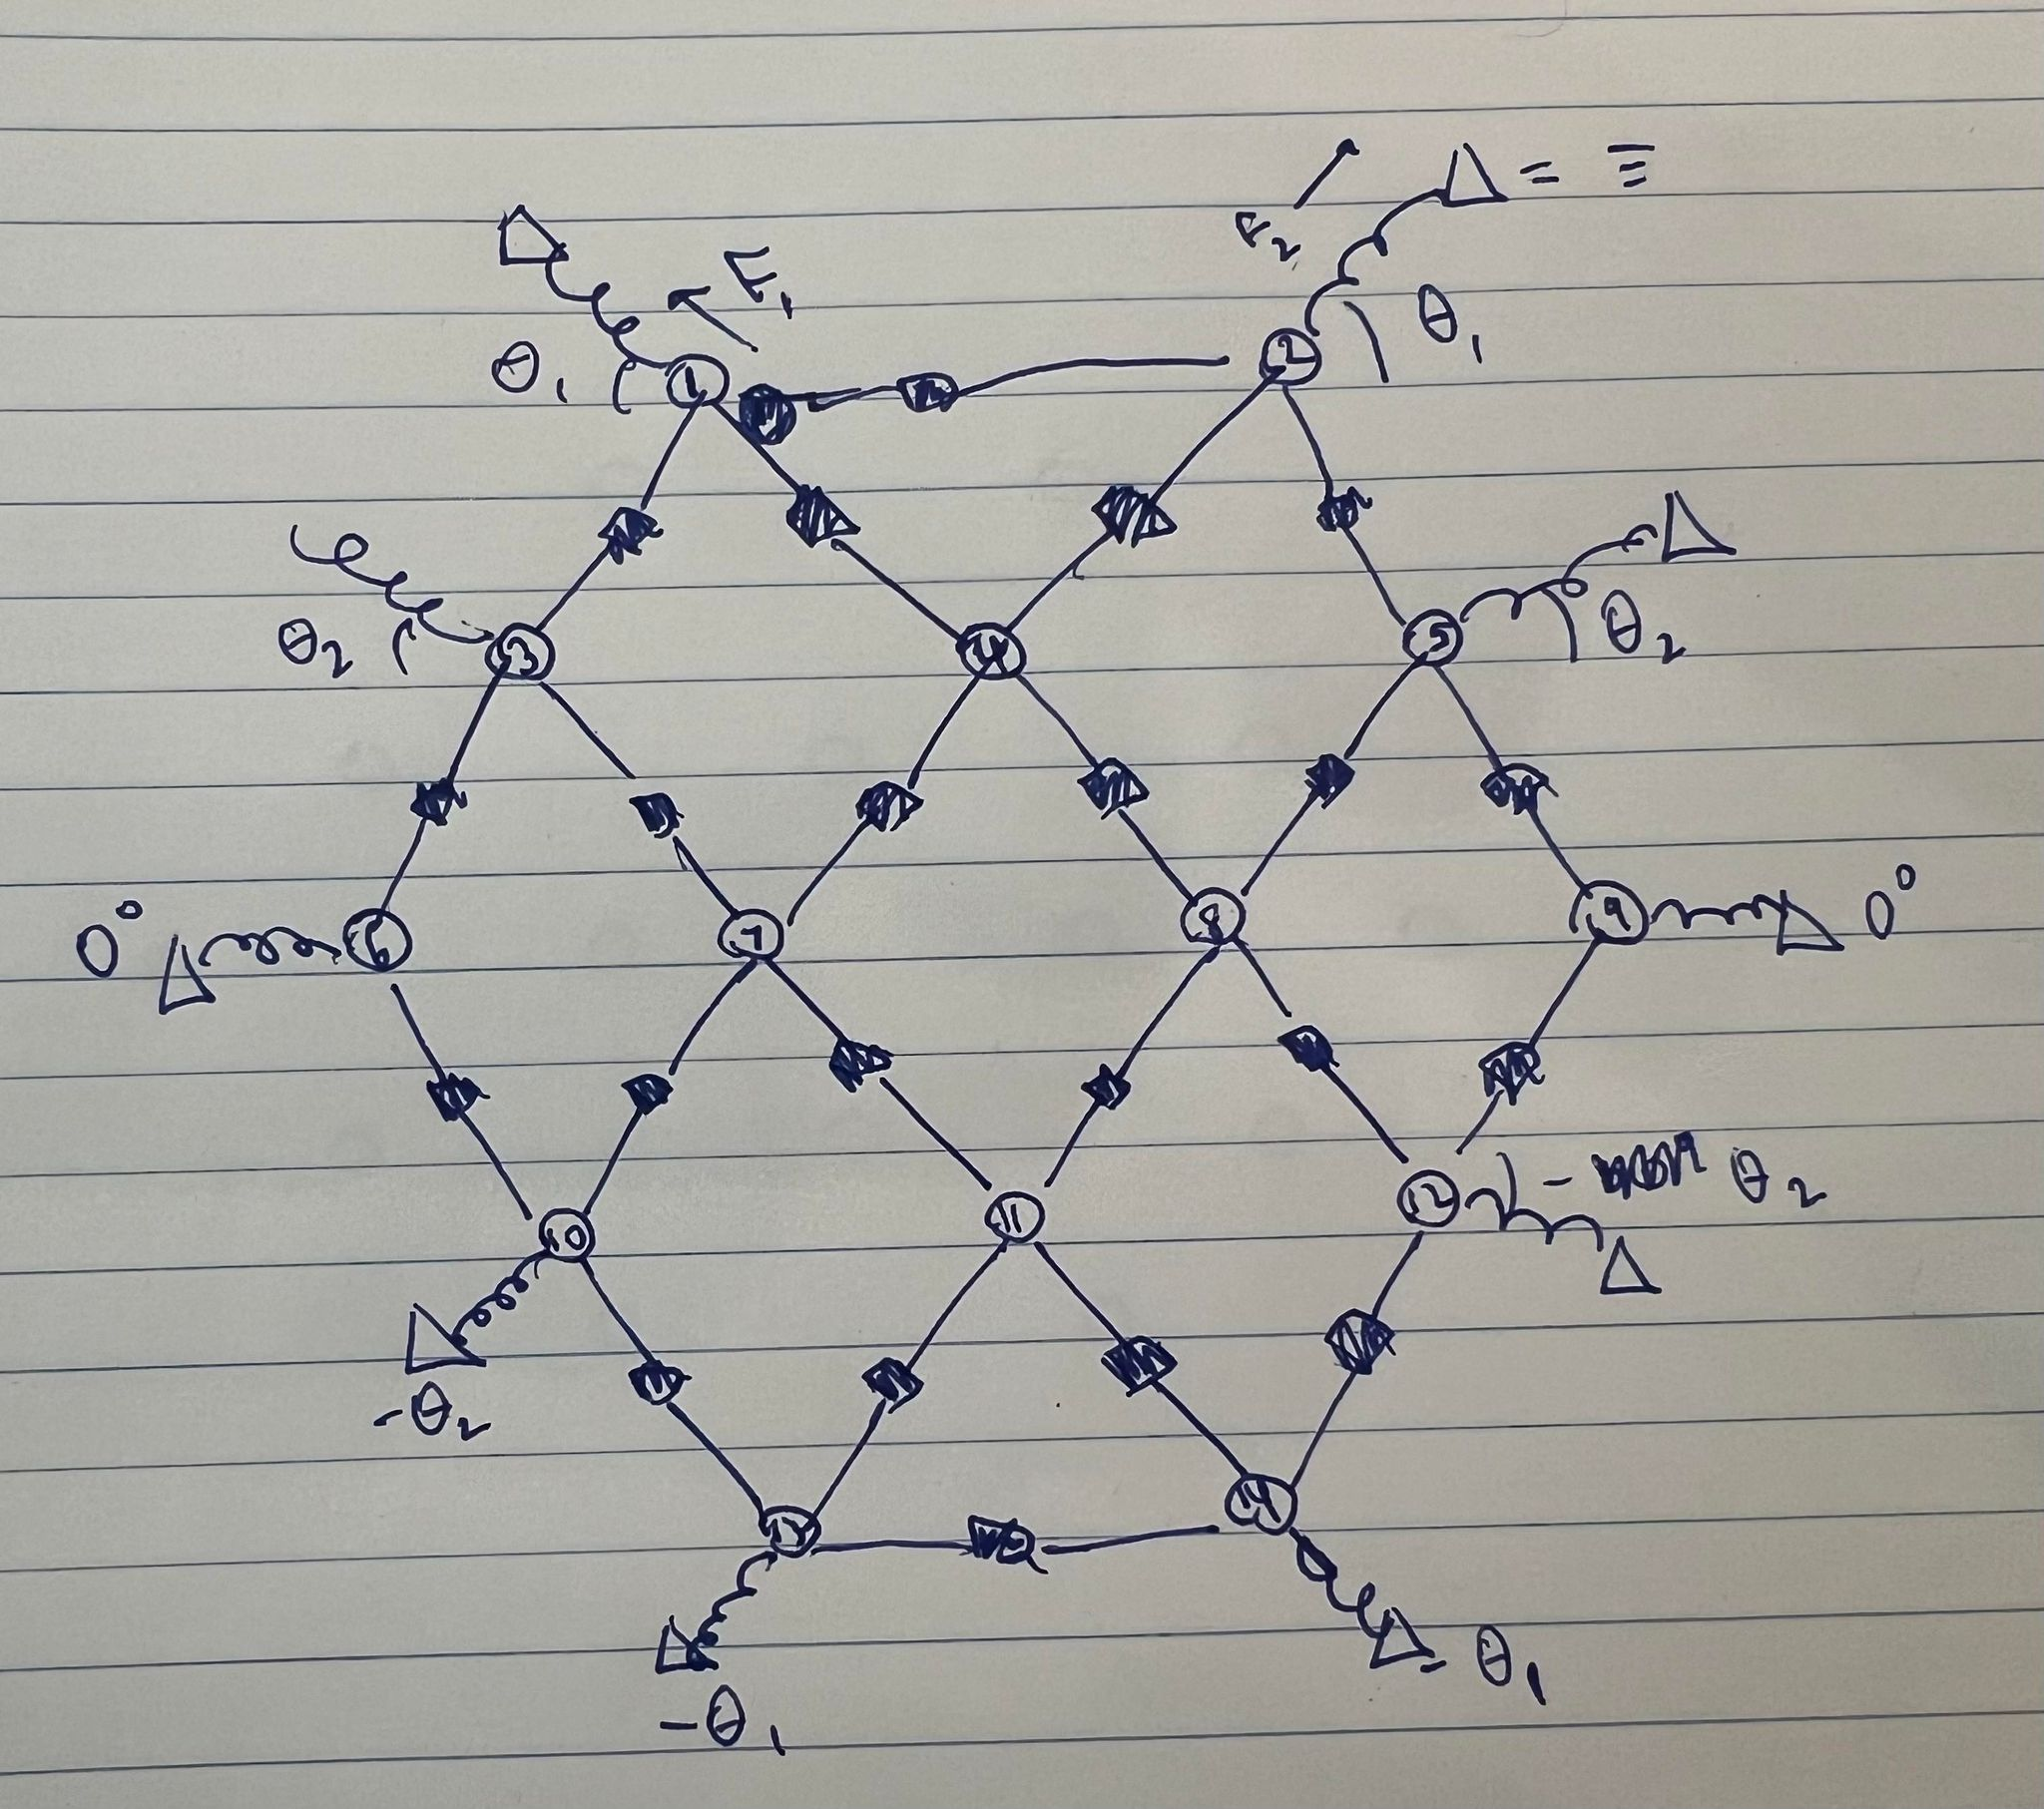 F₂
= Ξ
F₁
θ₁
1
2
θ₁
θ₂
3
4
5
θ₂
0°
6
7
8
9
0°
10
11
12
- θ₂
-θ₂
13
14
- θ₁
-θ₁